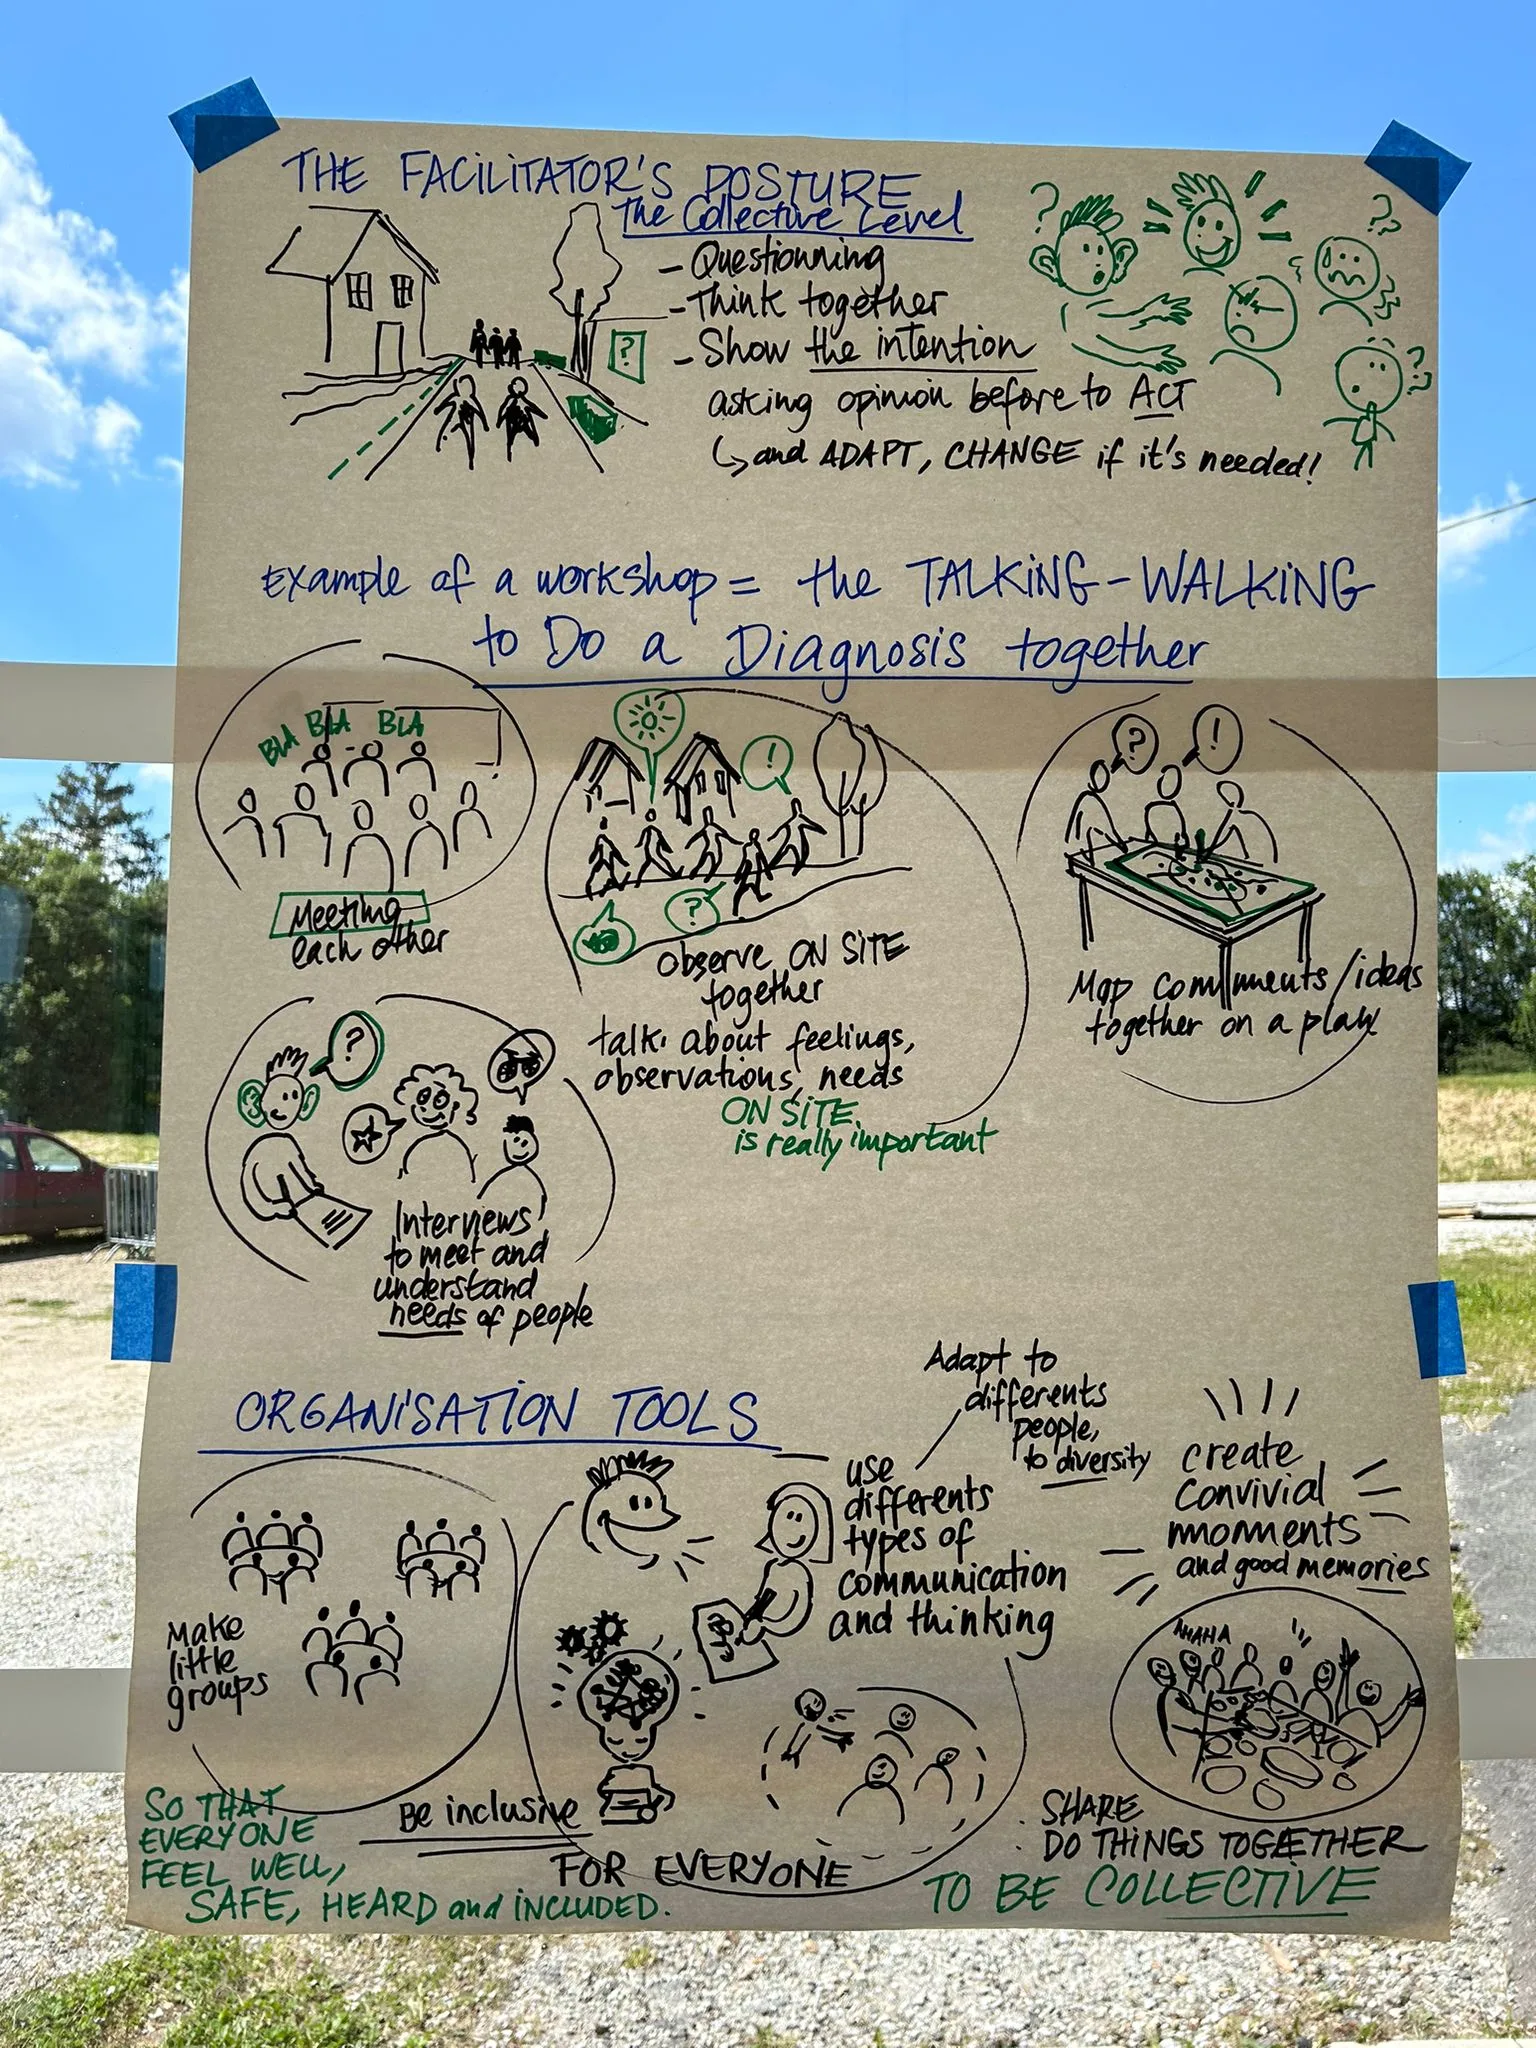 THE FACILITATOR'S POSTURE
The Collective Level
- Questionning
- Think together
- Show the intention
asking opinion before to ACT
↳ and ADAPT, CHANGE if it's needed!
?
?
??
??
Example of a workshop = the TALKING-WALKING
to Do a Diagnosis together
BLA BLA BLA
Meeting
each other
!
?
observe ON SITE
together
talk about feelings,
observations, needs
ON SITE
is really important
? !
Map comments/ideas
together on a plan
?
Interviews
to meet and
understand
needs of people
ORGANISATION TOOLS
Make
little
groups
use
differents
types of
communication
and thinking
Adapt to
differents
people,
to diversity
create
convivial
moments
and good memories
AHAHA
SO THAT
EVERYONE
FEEL WELL,
SAFE, HEARD and INCLUDED.
Be inclusive
FOR EVERYONE
SHARE
DO THINGS TOGETHER
TO BE COLLECTIVE